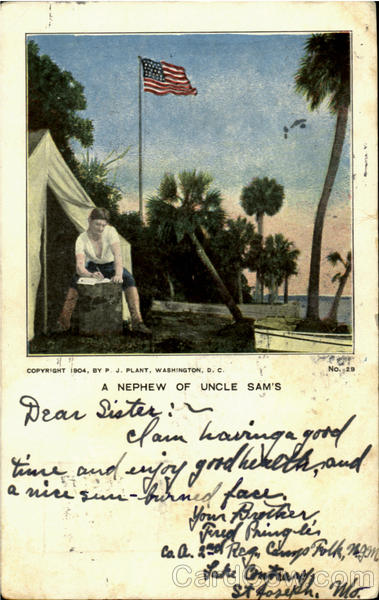 COPYRIGHT 1904, BY P. J. PLANT, WASHINGTON, D. C. No. 29
A NEPHEW OF UNCLE SAM'S
Dear Sister:~
I am having a good
time and enjoy good health, and
a nice sun-burned face.
Your Brother
Fred Pringle,
Co. A. 2nd Reg. Camp Folk, N.G.M.
Lake Contrary,
St Joseph. Mo.
CardCow.com